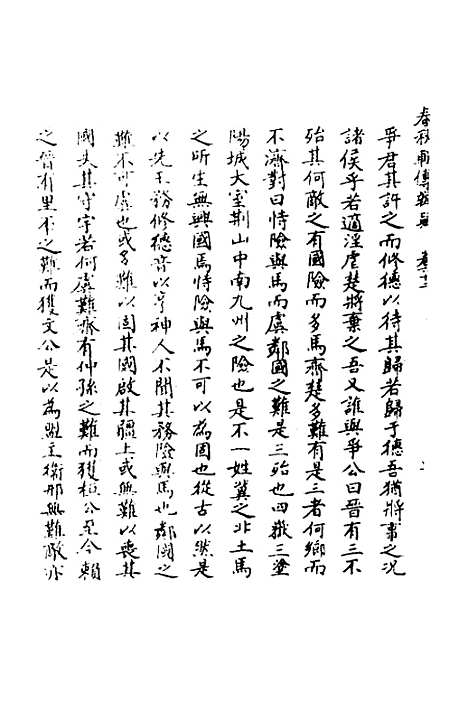 春秋前傳 卷十二
爭君其許之而修德以待其歸若歸于德吾猶將事之況
諸侯乎若適淫虐楚將棄之吾又誰與爭公曰晉有三不
殆其何敵之有國險而多馬齊楚多難有是三者何鄉而
不濟對曰恃險與馬而虞鄰國之難是三殆也四嶽三塗
陽城大室荊山中南九州之險也是不一姓冀之北土馬
之所生無興國焉恃險與馬不可以為固也從古以然是
以先王務修德音以亨神人不聞其務險與馬也鄰國之
難不可虞也或多難以固其國啟其疆土或無難以喪其
國失其守宇若何虞難齊有仲孫之難而獲桓公至今賴
之晉有里丕之難而獲文公是以為盟主衛邢無難敵亦